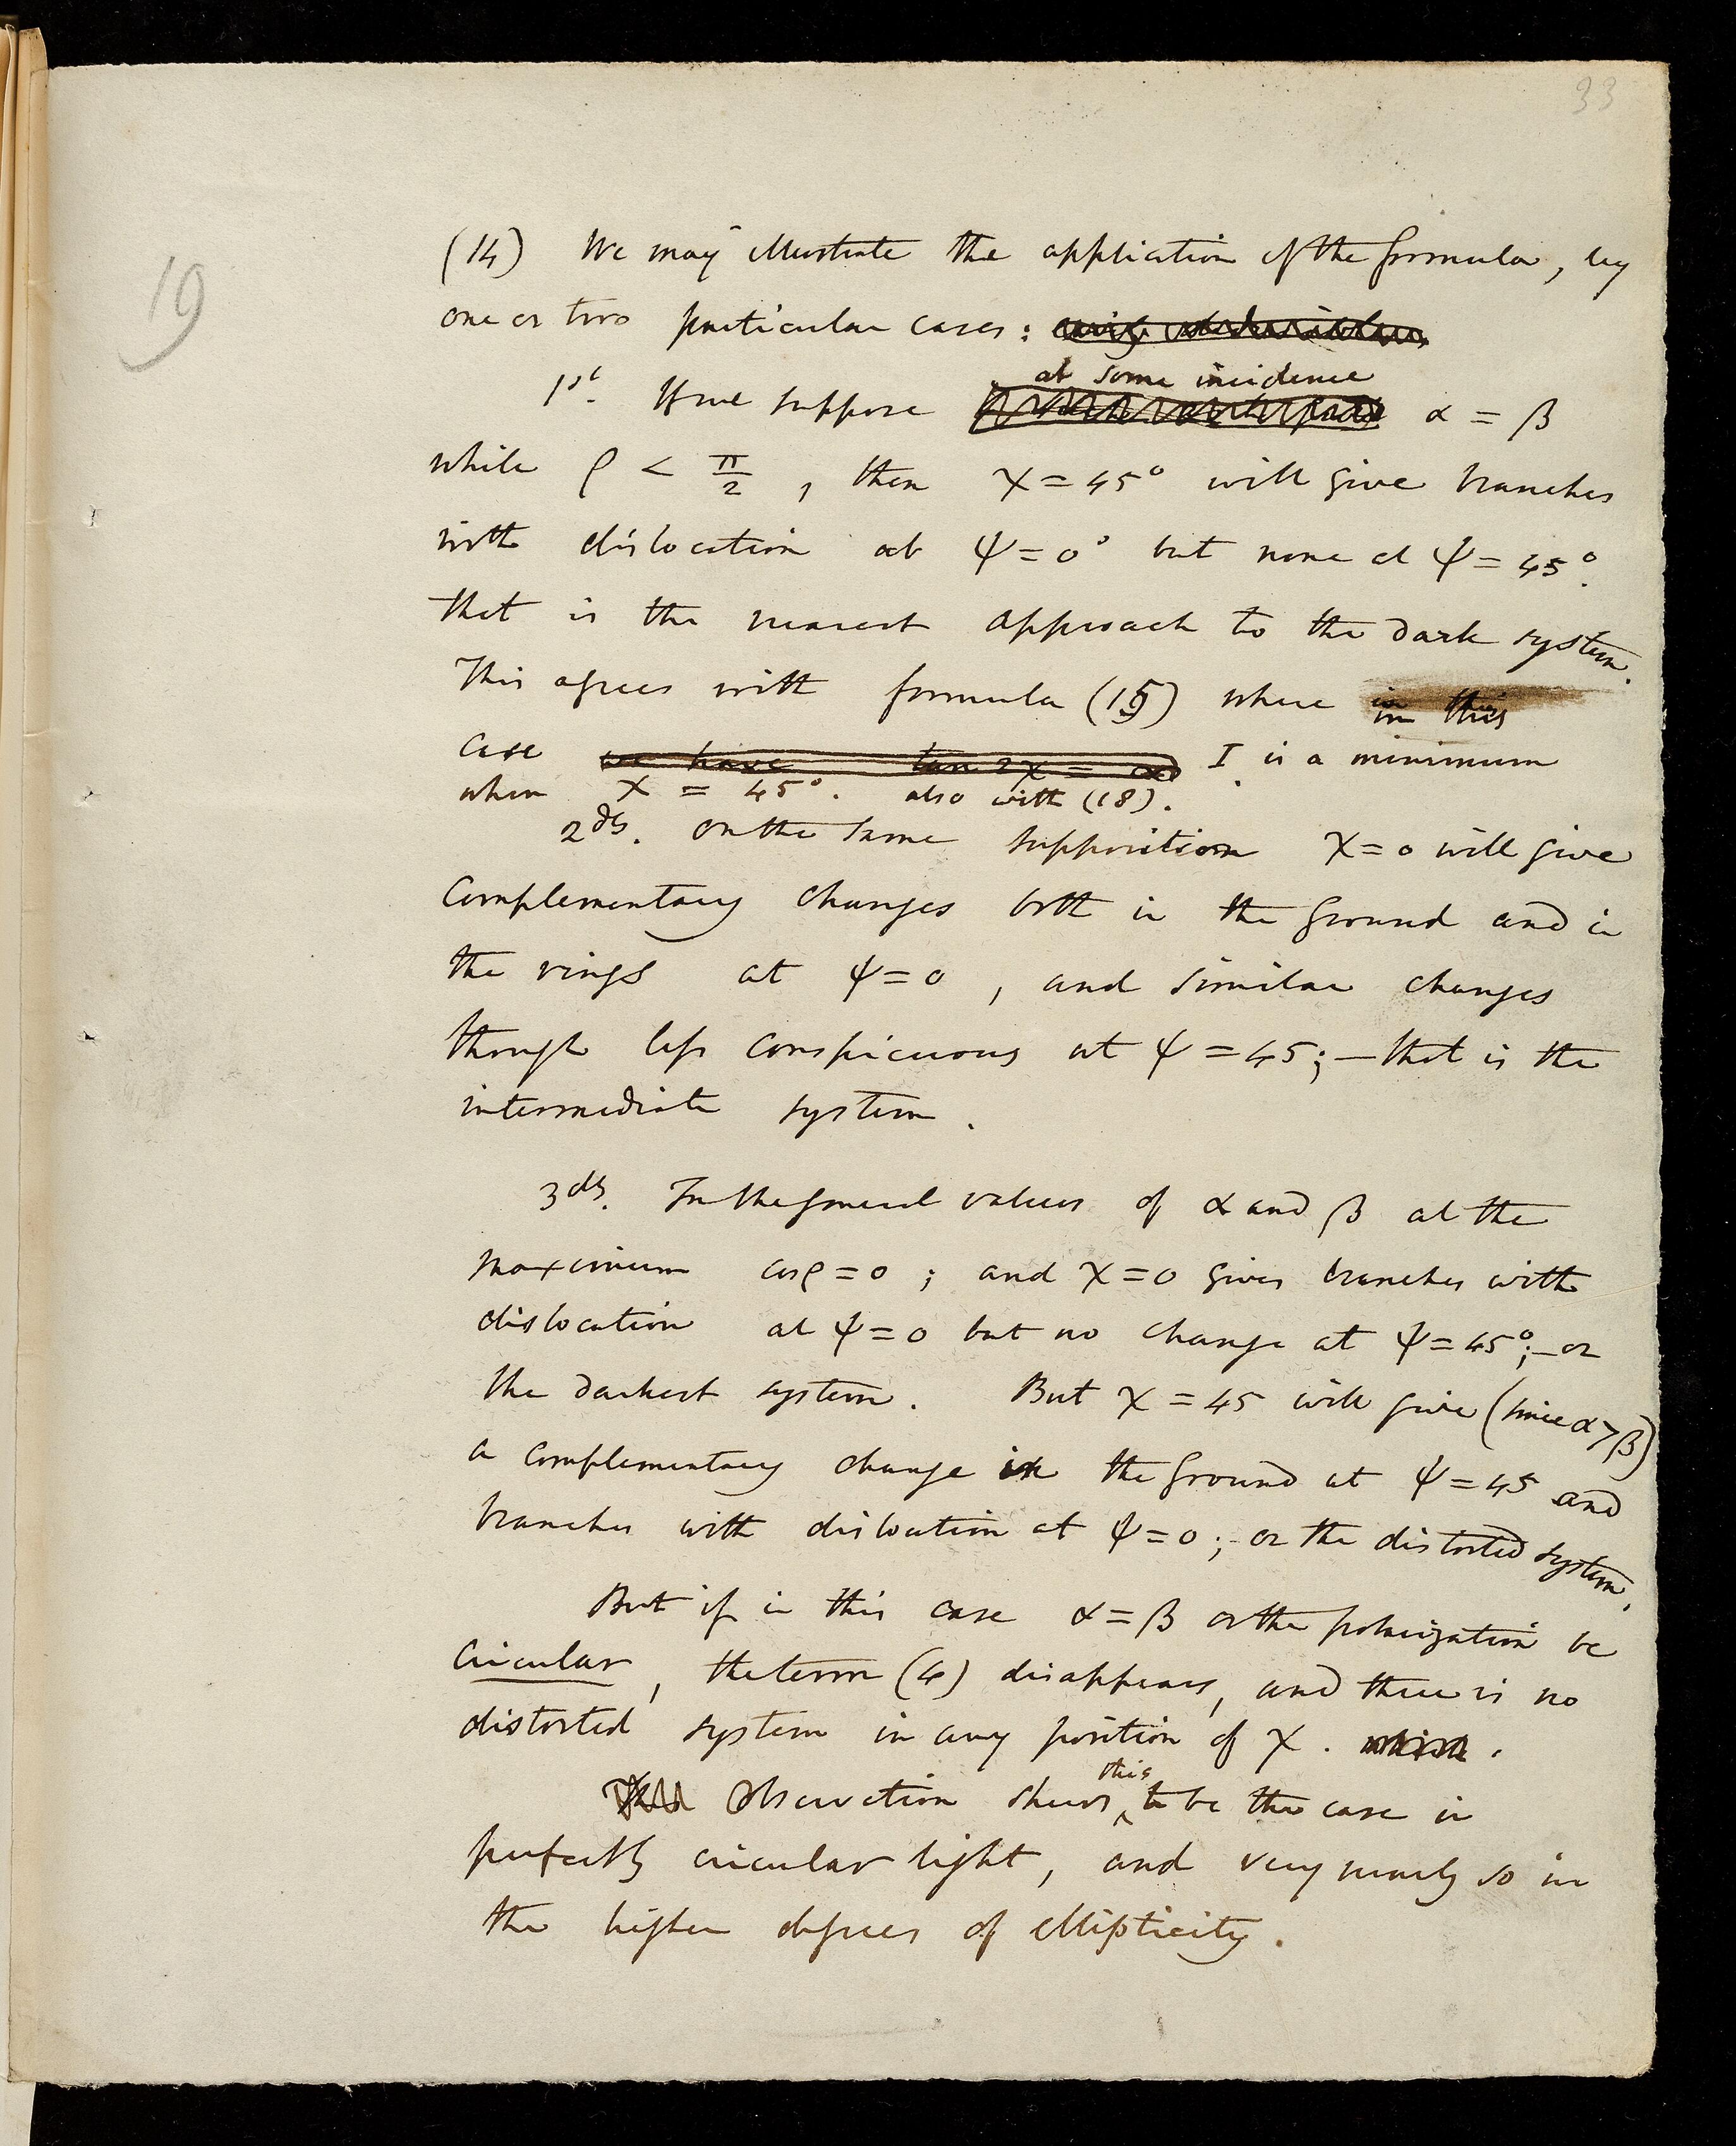 33
19
(14) We may illustrate the application of the formula, by
one or two particular cases:
at some incidence
1st. If we suppose α = β
while ρ < π/2, then χ = 45° will give branches
with dislocation at ψ = 0° but none at ψ = 45°.
that is the nearest approach to the dark system.
This agrees with formula (15) where in this
case we have tan 2χ = ∞ I is a minimum
when χ = 45°. also with (18).
2dly. On the same supposition χ = 0 will give
complementary changes both in the ground and in
the rings at ψ = 0, and similar changes
though less conspicuous at ψ = 45; — that is the
intermediate system.
3dly. In the general values of α and β at the
maximum cos ρ = 0; and χ = 0 gives branches with
dislocation at ψ = 0 but no change at ψ = 45°; — or
the darkest system. But χ = 45 will give (since α > β)
a complementary change in the ground at ψ = 45 and
branches with dislocation at ψ = 0; - or the distorted system.
But if in this case α = β or the polarization be
circular, the term (4) disappears, and there is no
distorted system in any position of χ. which.
this
Observation shews ‸ to be the case in
perfectly circular light, and very nearly so in
the higher degrees of ellipticity.